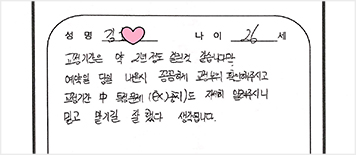 성 명 김 나 이 26 세
교정기간은 약 2년 정도 걸린것 같습니다만
예약일 당일 나온시 꼼꼼하게 교정부위 확인해주시고
교정기간 中 특정문제 (EX) 충치)도 자세히 알려주시니
믿고 맡기길 잘 했다 생각됩니다.